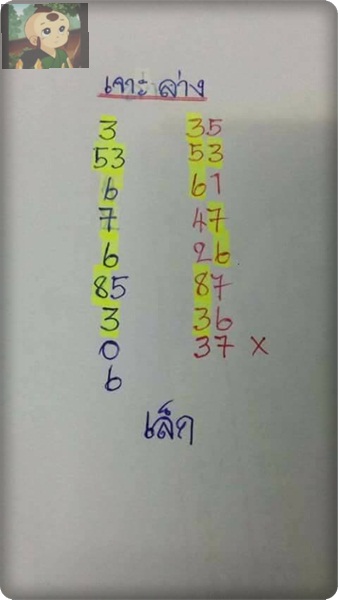 เจาะ ล่าง
3 35
53 53
6 61
7 47
6 26
85 87
3 36
0 37 X
6
เล็ก